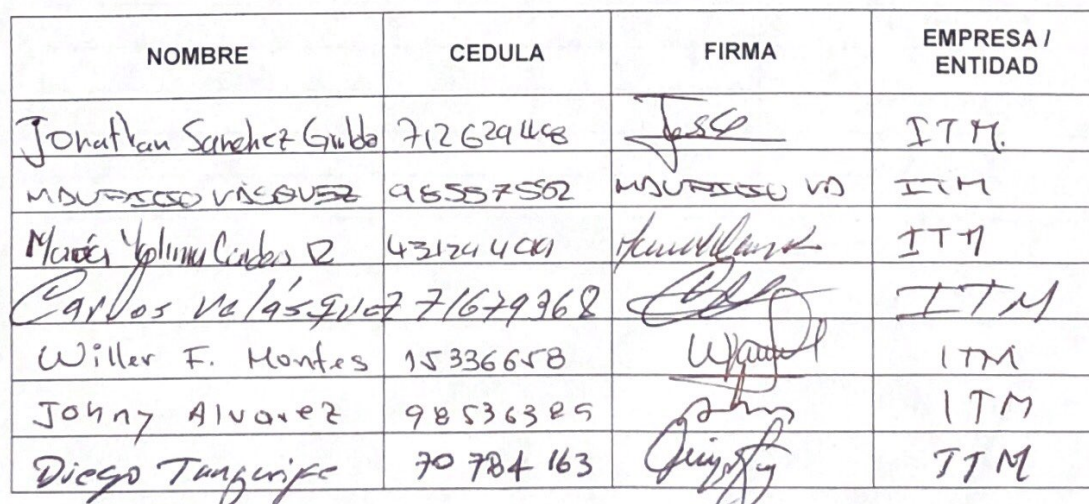 NOMBRE CEDULA FIRMA EMPRESA / ENTIDAD
Jonathan Sanchez 712629448 ITM.
MAURICIO VASQUEZ 98557562 MAURICIO VA ITM
María ITM
Carlos Velásquez 71679968 ITM
Willer F. Montes 15336658 ITM
Johny Alvarez 98536385 ITM
Diego 70 784 163 ITM